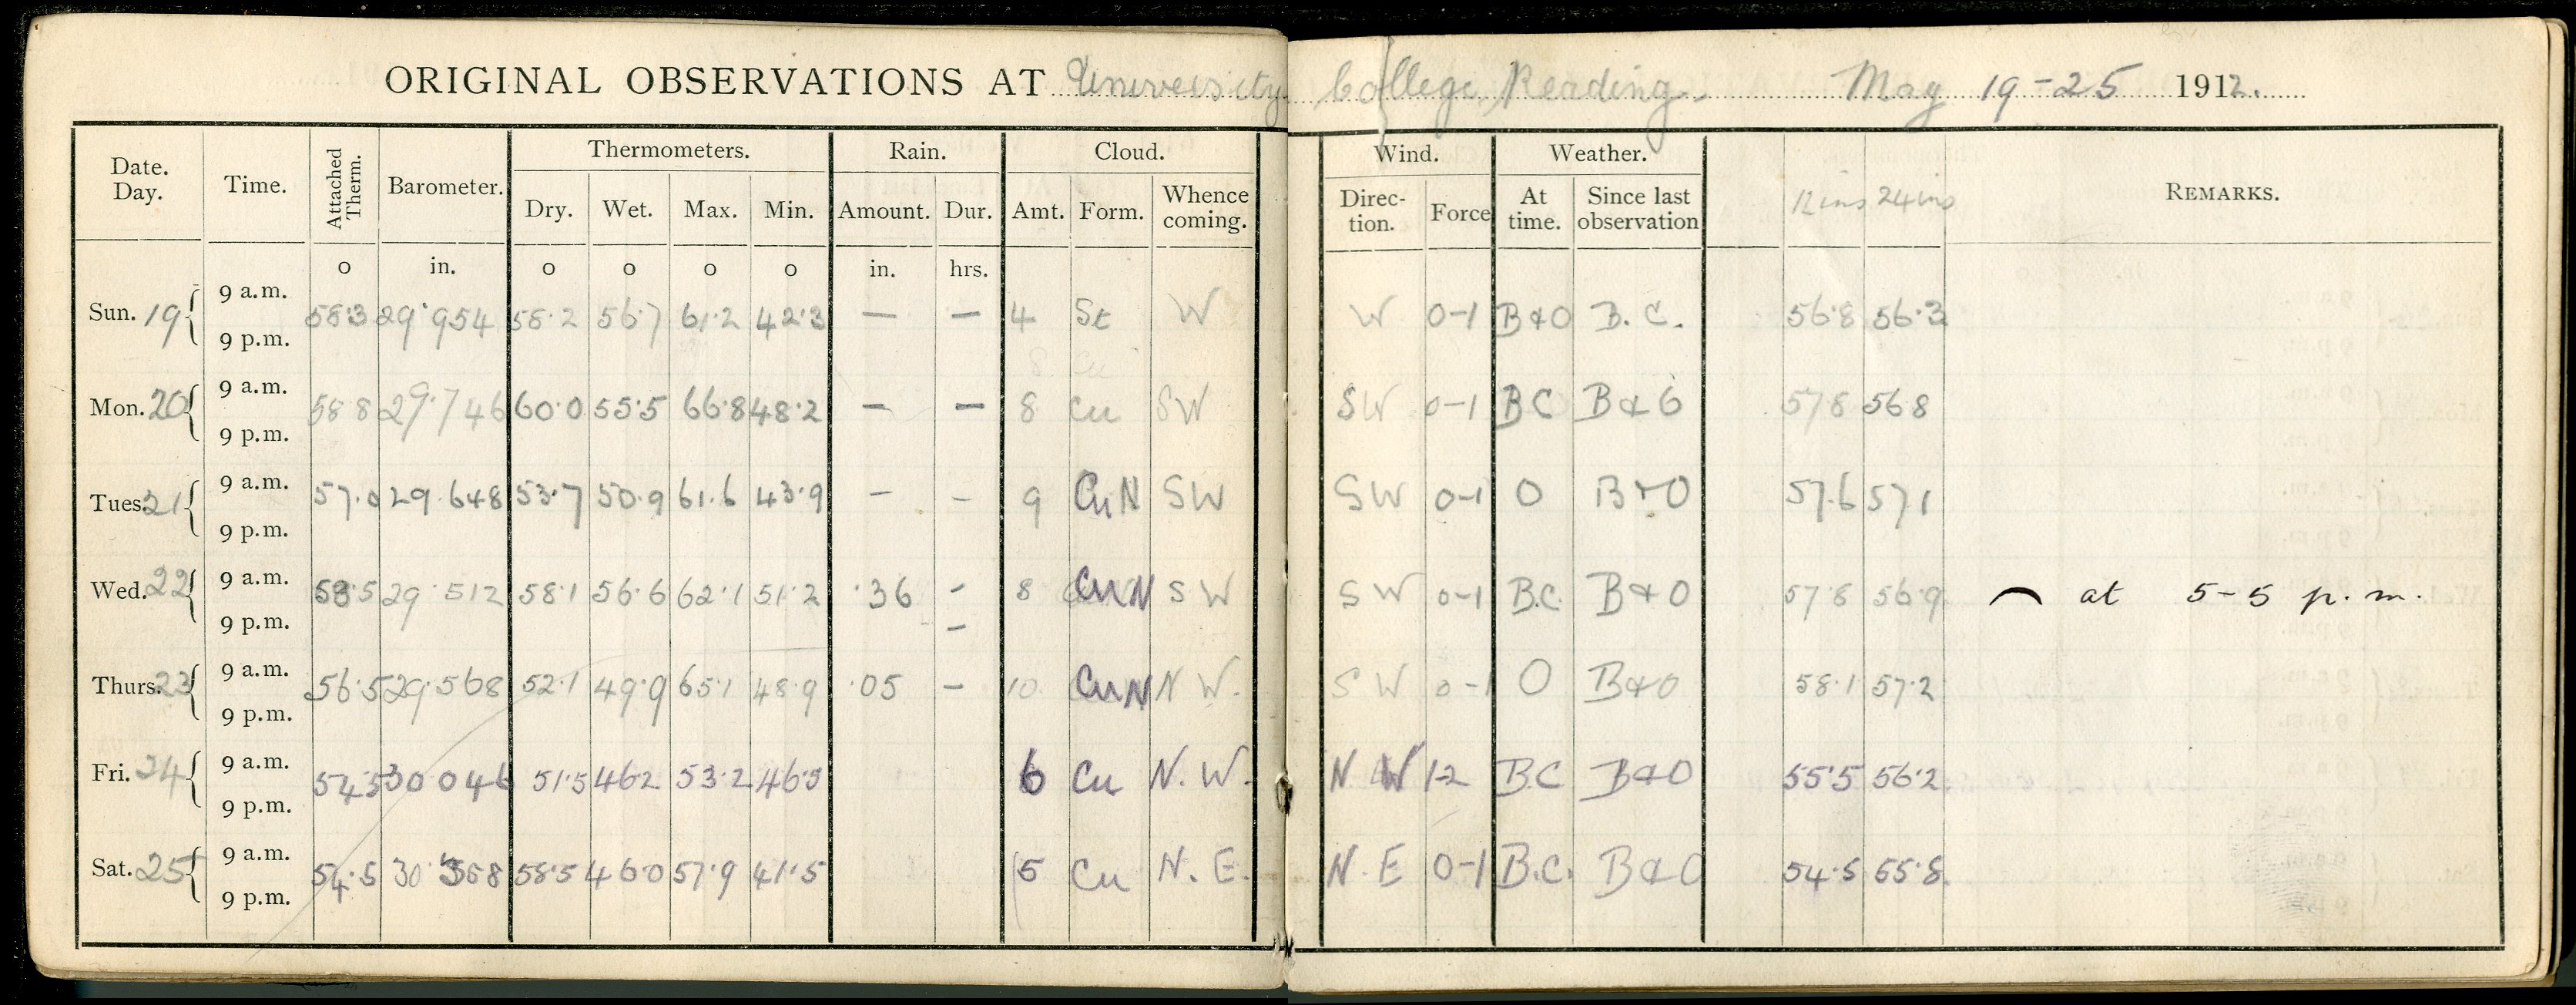 ORIGINAL OBSERVATIONS AT University College Reading. May 19-25 1912.
Date. Day. Time. Attached Therm. Barometer. Thermometers. Rain. Cloud. Wind. Weather. 12 ins 24 ins REMARKS.
Dry. Wet. Max. Min. Amount. Dur. Amt. Form. Whence coming. Direc- tion. Force At time. Since last observation
o in. o o o o in. hrs.
Sun. 19 9 a.m. 58.3 29.954 58.2 56.7 61.2 42.3 — — 4 St W W 0-1 B&O B.C. 56.8 56.3
9 p.m.
Mon. 20 9 a.m. 58.8 29.746 60.0 55.5 66.8 48.2 — — 8 Cu SW SW 0-1 BC B&O 57 8 56 8
9 p.m.
Tues. 21 9 a.m. 57.0 29.648 53.7 50.9 61.6 43.9 — — 9 CuN SW SW 0-1 O B&O 57.6 57.1
9 p.m.
Wed. 22 9 a.m. 58.5 29.512 58.1 56.6 62.1 51.2 .36 — 8 CuN SW SW 0-1 B.C. B&O 57.8 56.9 at 5-5 p.m.
9 p.m. —
Thurs. 23 9 a.m. 56.5 29.568 52.1 49.9 65.1 48.9 .05 — 10 CuN N W. SW 0-1 O B&O 58.1 57.2
9 p.m.
Fri. 24 9 a.m. 54.5 30 046 51.5 46.2 53.2 46.5 6 Cu N. W. N W 1-2 B.C B&O 55.5 56.2
9 p.m.
Sat. 25 9 a.m. 54.5 30.368 58.5 46.0 57.9 41.5 5 Cu N. E. N. E 0-1 B.C. B&O 54.5 55.8
9 p.m.